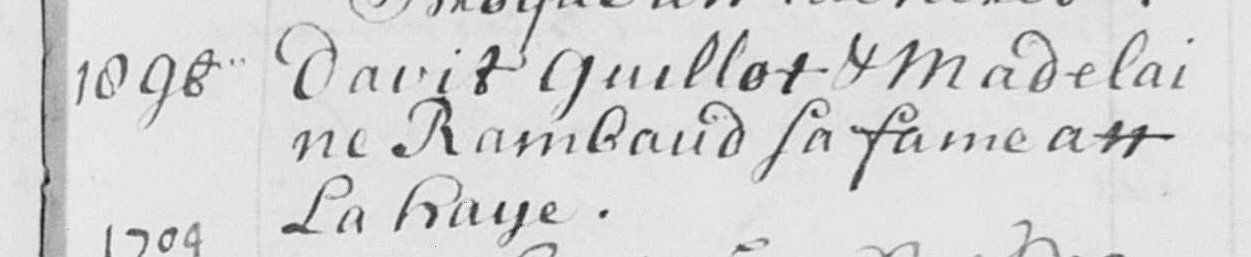 1698 Davit Guillot & Madelai
ne Rambaud sa fame att
La haye.
1704